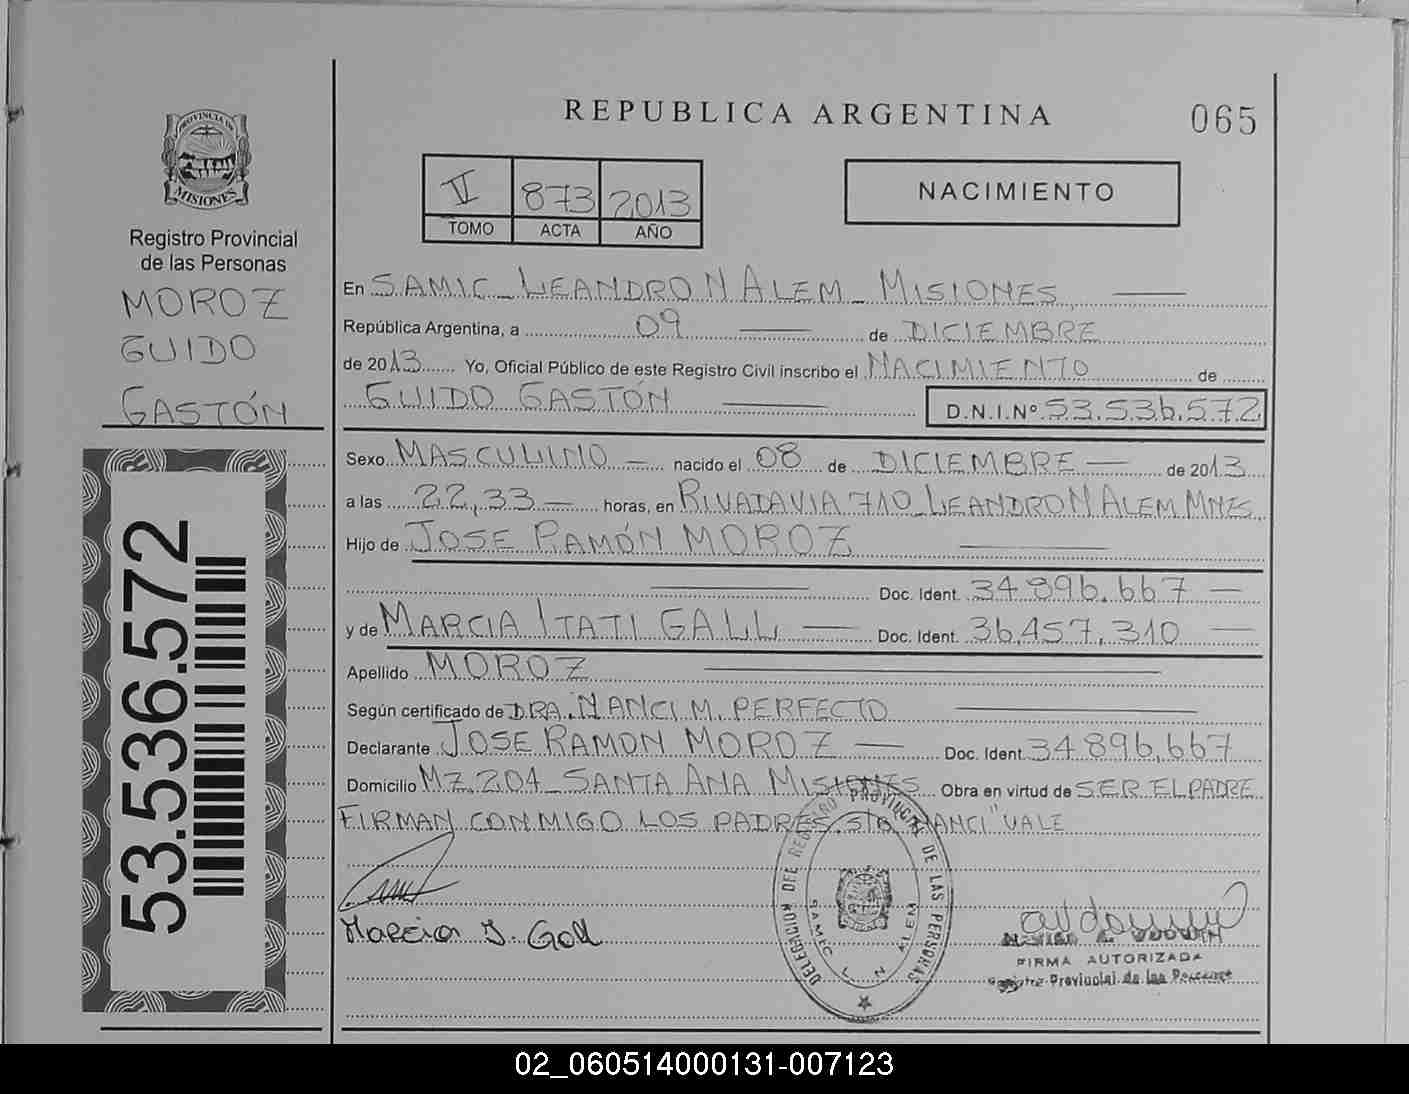 REPUBLICA ARGENTINA
065
PROVINCIA DE
MISIONES
Registro Provincial
de las Personas
MOROZ
GUIDO
GASTÓN
53.536.572
VI 873 2013
TOMO ACTA AÑO
NACIMIENTO
En SAMIC_LEANDRO N ALEM_ MISIONES
República Argentina, a 09 de DICIEMBRE
de 2013 Yo, Oficial Público de este Registro Civil inscribo el NACIMIENTO de
GUIDO GASTÓN D.N.I.Nº 53.536.572
Sexo MASCULINO nacido el 08 de DICIEMBRE de 2013
a las 22,33 horas, en RIVADAVIA 710_LEANDRO N ALEM MNES
Hijo de JOSE RAMÓN MOROZ
Doc. Ident. 34.896.667
y de MARCIA ITATI GALL Doc. Ident. 36.457.310
Apellido MOROZ
Según certificado de DRA. NANCI M. PERFECTO
Declarante JOSE RAMON MOROZ Doc. Ident. 34.896.667
Domicilio MZ 204_SANTA ANA MISIONES Obra en virtud de SER EL PADRE
FIRMAN CONMIGO LOS PADRES. S/R "NANCI" VALE
Marcia I. Gall
DELEGACION DEL REGISTRO PROVINCIAL DE LAS PERSONAS
SAMIC L. N. ALEM
FIRMA AUTORIZADA
Registro Provincial de las Personas
02_060514000131-007123